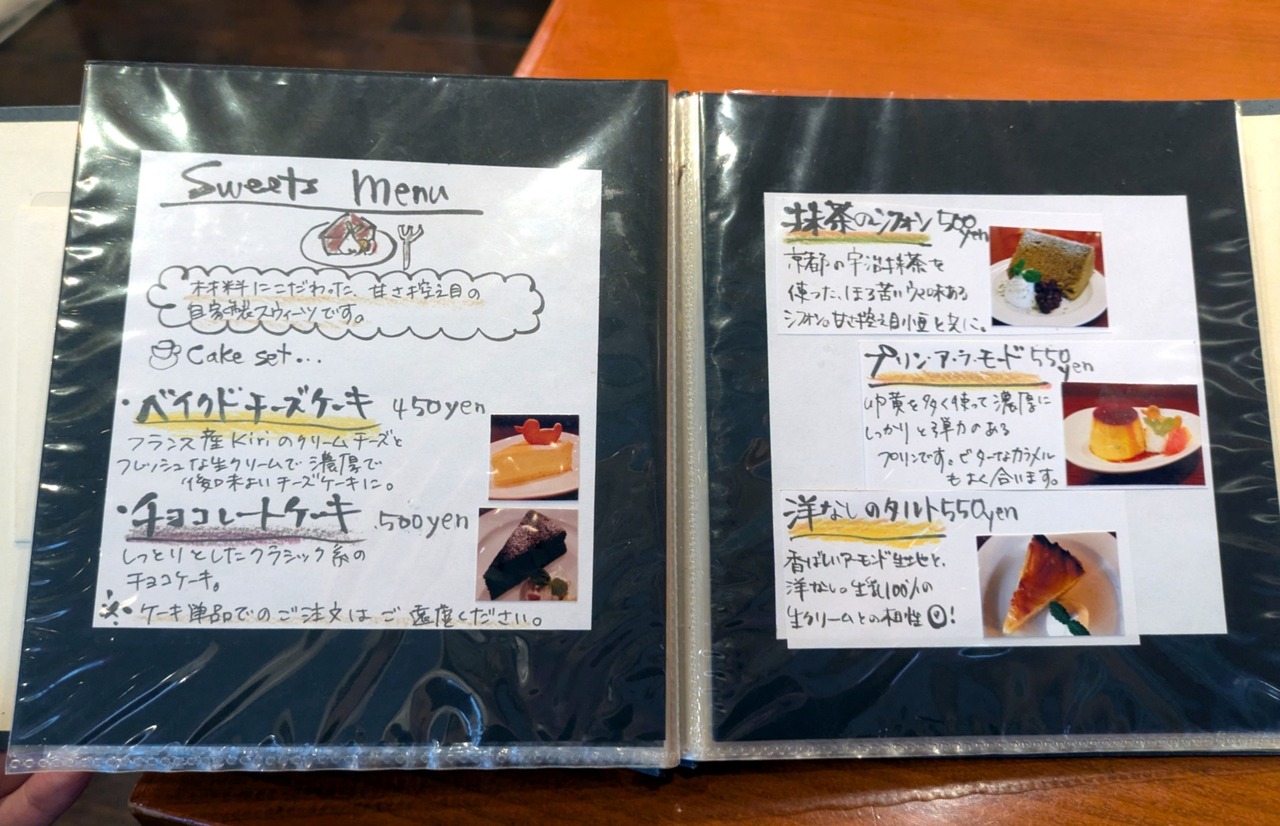 Sweets Menu
材料にこだわった、甘さ控え目の
自家製スウィーツです。
Cake set...
・ベイクドチーズケーキ 450yen
フランス産Kiriのクリームチーズと
フレッシュな生クリームで濃厚で
後味よいチーズケーキに。
・チョコレートケーキ 500yen
しっとりとしたクラシック系の
チョコケーキ。
※ケーキ単品でのご注文はご遠慮ください。
抹茶のシフォン 500yen
京都の宇治抹茶を
使った、ほろ苦い味ある
シフォン。甘さ控え目小豆と共に。
プリン・ア・ラ・モード 550yen
卵黄を多く使って濃厚に
しっかりと弾力のある
プリンです。ビターなカラメル
もよく合います。
洋なしのタルト 550yen
香ばしいアーモンド生地と、
洋なし。生乳100%の
生クリームとの相性◎!